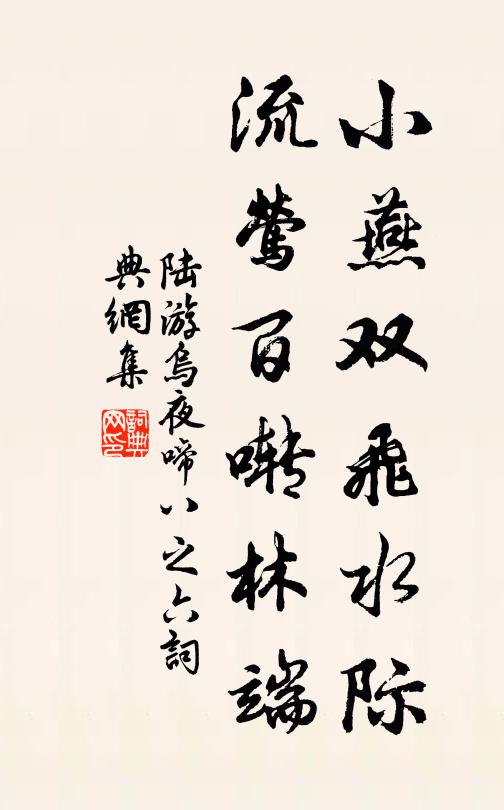 小燕双飞水际
流莺百啭林端
陆游乌夜啼八之六詞
典網集
詞典网印